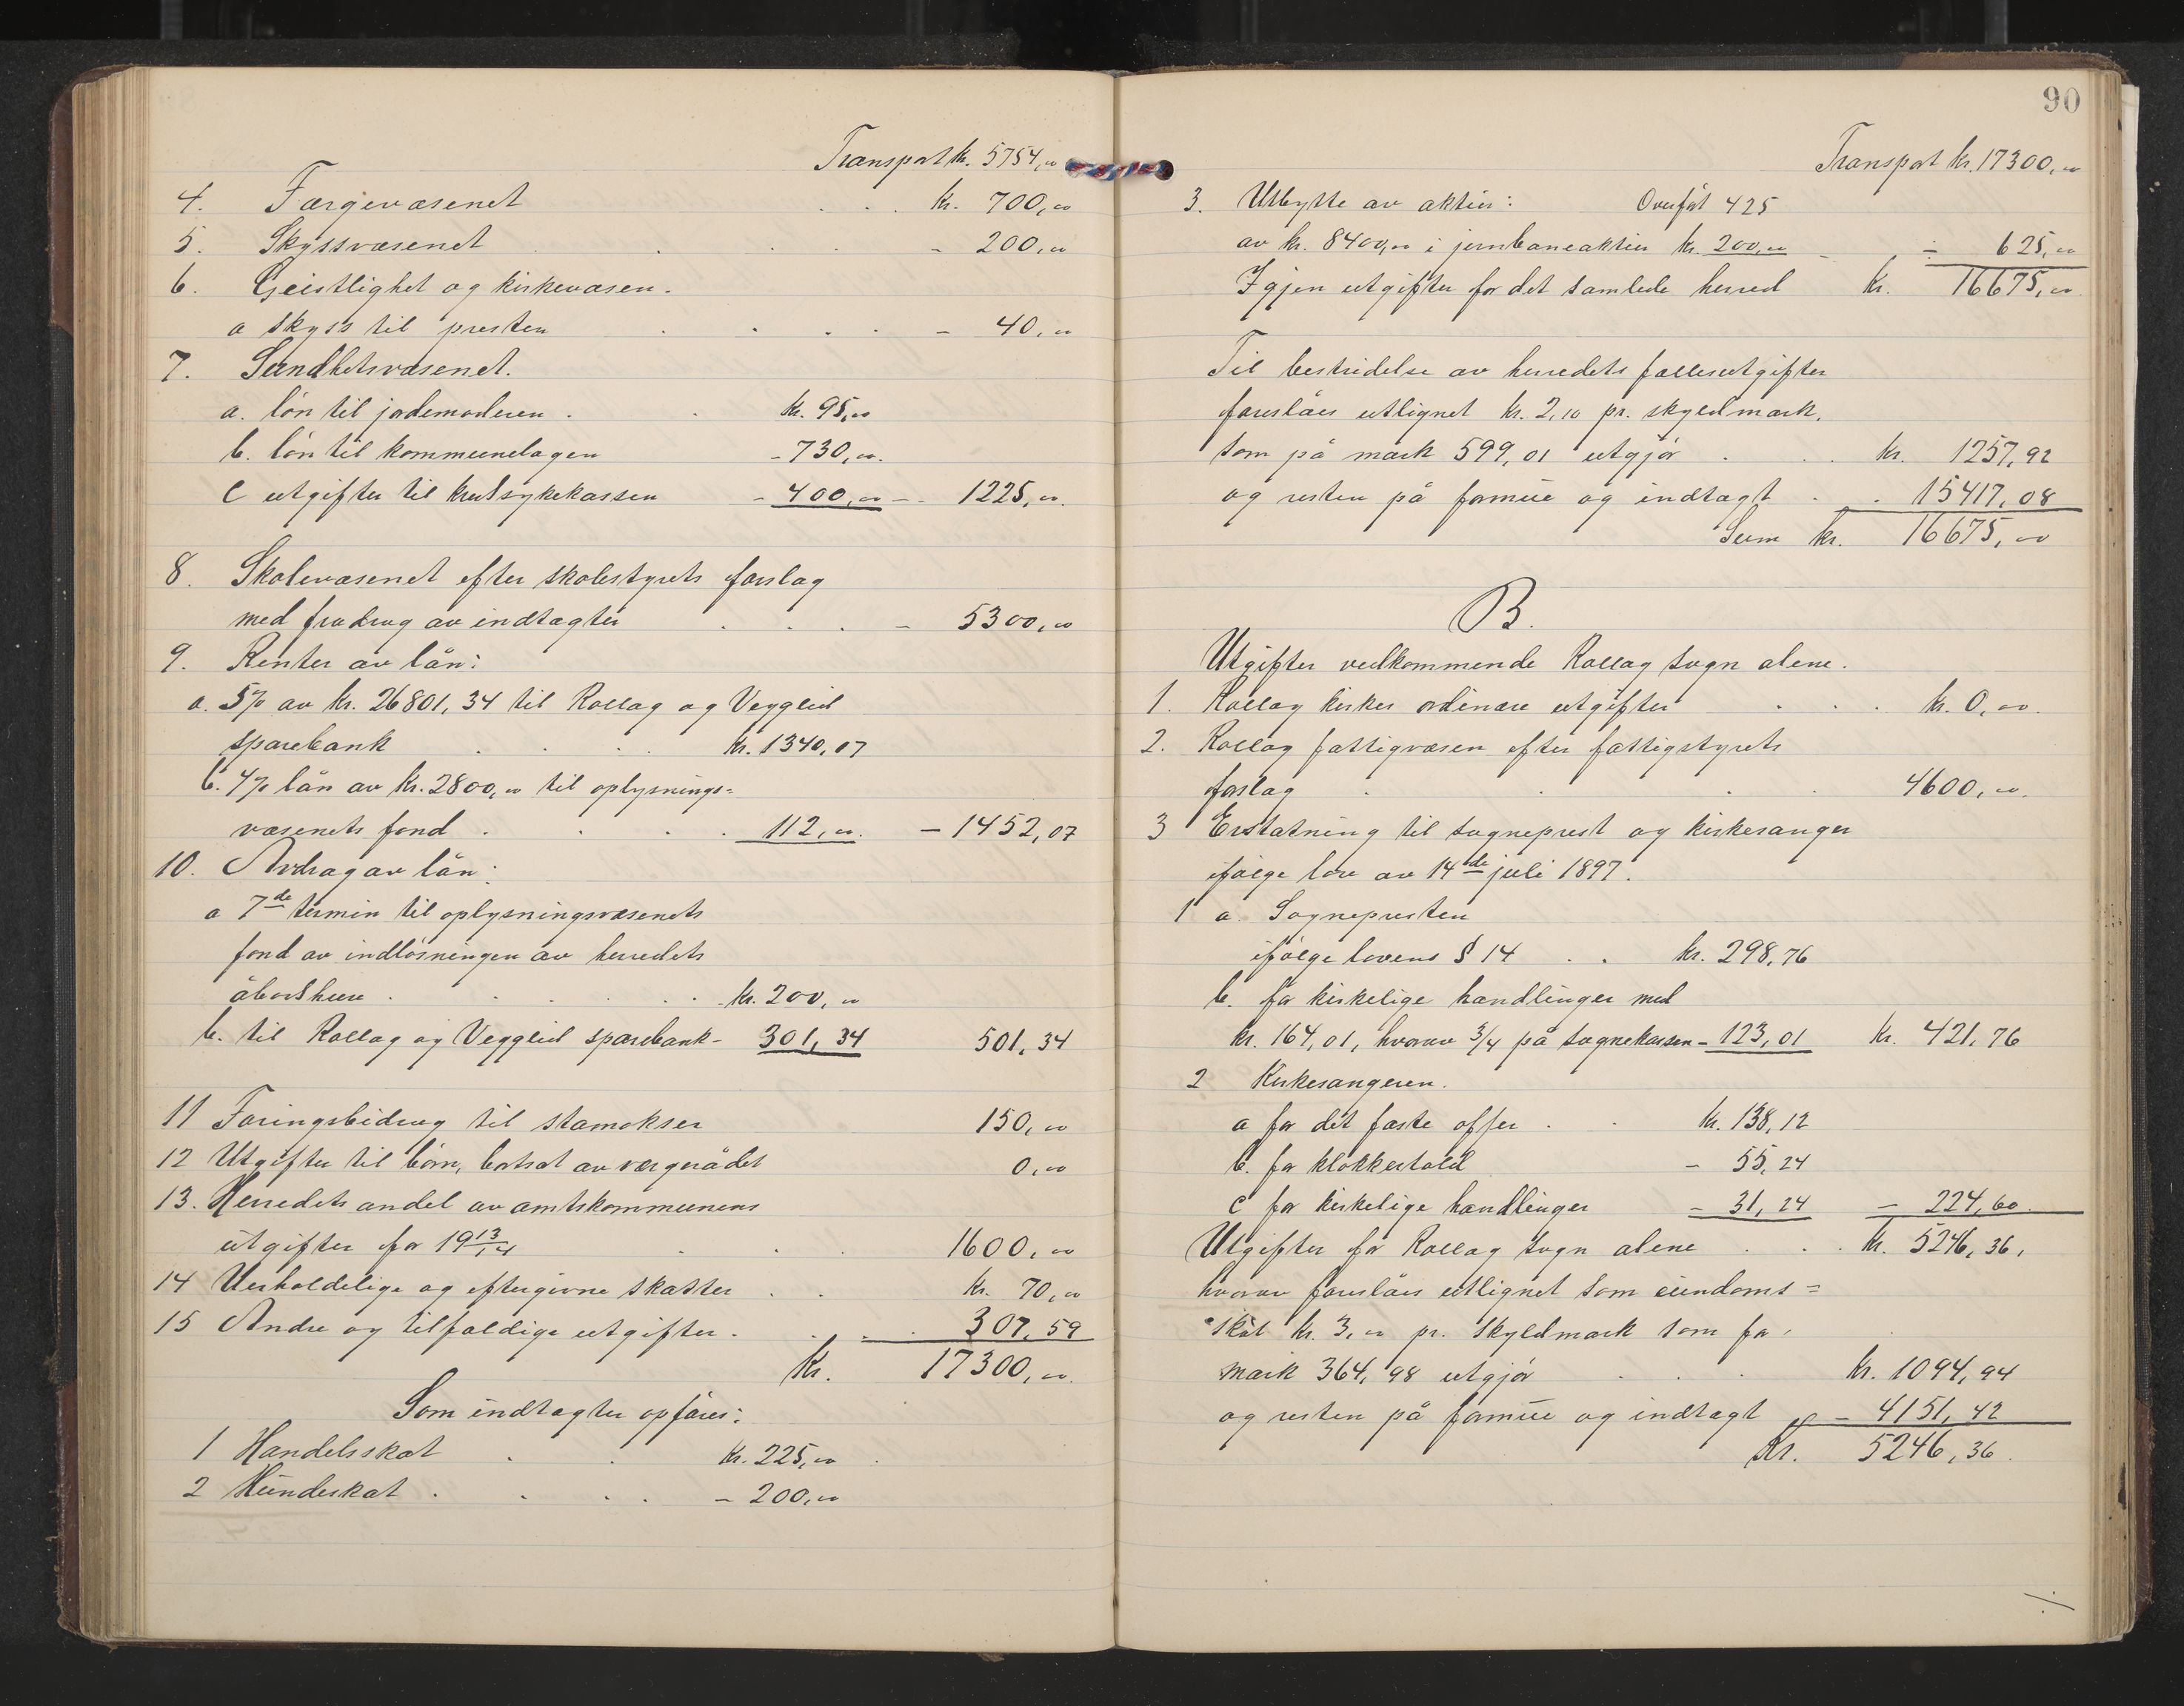 Transport kr. 5754,00
4. Færgevæsenet . . . kr. 700,00
5. Skyssvæsenet . . . . - 200,00
6. Geistlighet og kirkevæsen.
a skyss til presten . . . . - 40,00
7. Sundhetsvæsenet.
a. løn til jordemoderen . . kr. 95,00
b. løn til kommunelægen - 730,00.
c utgifter til kredssykekassen - 400,00 - 1225,00.
8. Skolevæsenet efter skolestyrets forslag
med fradrag av indtægter . . . - 5300,00
9. Renter av lån:
a. 5% av kr. 26801,34 til Rollag og Vegglid
sparebank . . . . kr. 1340,07
b. 4% lån av kr. 2800,00 til oplysnings=
væsenets fond . . . . 112,00. - 1452,07
10. Avdrag av lån:
a 7de termin til oplysningsvæsenets
fond av indløsningen av herredets
åbodshus . . . . . kr. 200,00
b. til Rollag og Vegglid sparebank - 301,34 501,34
11 Foringsbidrag til stamokser 150,00
12 Utgifter til børn, bortsat av vergerådet 0,00
13. Herredets andel av amtskommunens
utgifter for 19 13/14 . . . 1600,00
14 Uerholdelige og eftergivne skatter . . kr. 70,00
15 Andre og tilfældige utgifter . . . . 307,59
Kr. 17300,00.
Som indtægter opføres:
1 Handelsskat . . kr. 225,00
2 Hundeskat . . . . - 200,00
90
Transport kr. 17300,00
3. Utbytte av aktier: Overført 425
av kr. 8400,00 i jernbaneaktier kr. 200,00 - ÷ 625,00
Igjen utgifter for det samlede herred Kr. 16675,00.
Til bestridelse av herredets fællesutgifter
foreslåes utlignet kr. 2,10 pr. skyldmark,
som på mark 599,01 utgjør . . . kr. 1257,92
og resten på formue og indtægt . . 15417,08
Sum kr. 16675,00
B.
Utgifter vedkommende Rollag sogn alene.
1. Rollag kirkes ordinære utgifter . . . kr. 0,00.
2. Rollag fattigvæsen efter fattigstyrets
forslag . . . . 4600,00.
3 Erstatning til sogneprest og kirkesanger
ifølge lov av 14de juli 1897.
1 a. Sognepresten
ifølge lovens § 14 . . kr. 298,76
b. for kirkelige handlinger med
kr. 164,01, hvorav 3/4 på sognekassen - 123,01 kr. 421,76
2 Kirkesangeren.
a for det faste offer . . kr. 138,12
b. for klokkertold - 55,24
c for kirkelige handlinger - 31,24 - 224,60.
Utgifter for Rollag sogn alene . . . kr. 5246,36,
hvorav foreslåes utlignet som eiendoms=
skat kr. 3,00 pr. skyldmark som for
mark 364,98 utgjør . . . kr. 1094,94
og resten på formue og indtægt - 4151,42
Kr. 5246,36.